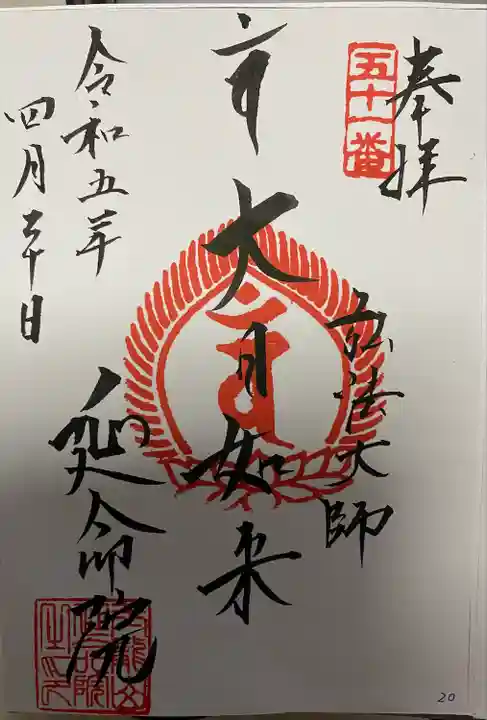 奉拝
五十一番
弘法大師
大日如来
延命院
令和五年
四月三十日
20